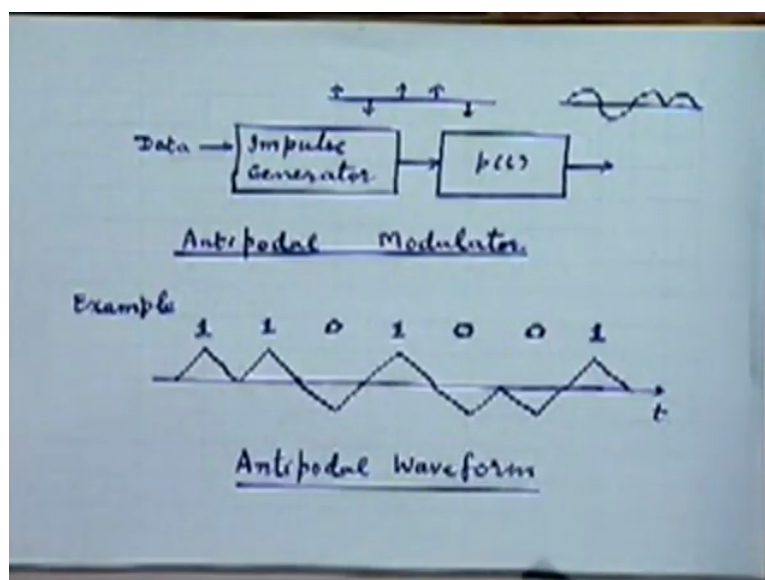 Data Impulse Generator p(t)
Antipodal Modulator
Example
1 1 0 1 0 0 1
t
Antipodal Waveform